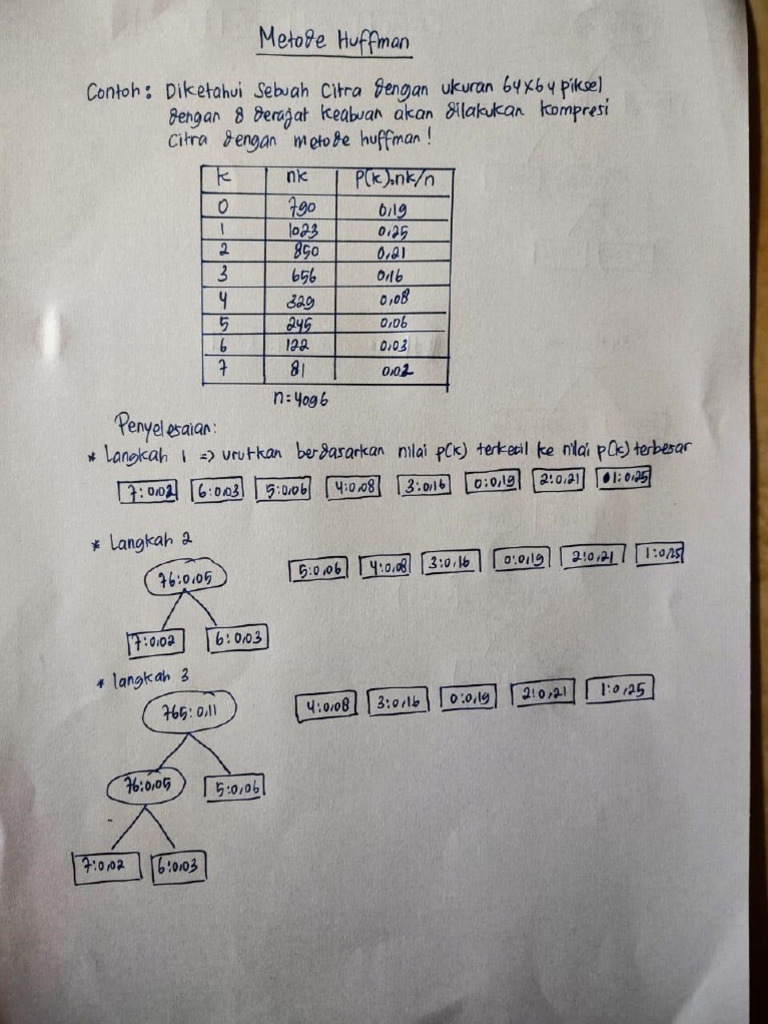 Metode Huffman
Contoh: Diketahui Sebuah Citra dengan ukuran 64x64 piksel
dengan 8 derajat keabuan akan dilakukan kompresi
Citra dengan metode huffman!
k nk P(k)=nk/n
0 790 0,19
1 1023 0,25
2 850 0,21
3 656 0,16
4 329 0,08
5 245 0,06
6 122 0,03
7 81 0,02
n=4096
Penyelesaian:
* Langkah 1 => urutkan berdasarkan nilai p(k) terkecil ke nilai p(k) terbesar
7:0,02 6:0,03 5:0,06 4:0,08 3:0,16 0:0,19 2:0,21 1:0,25
* Langkah 2
76:0,05 5:0,06 4:0,08 3:0,16 0:0,19 2:0,21 1:0,25
7:0,02 6:0,03
* langkah 3
765:0,11 4:0,08 3:0,16 0:0,19 2:0,21 1:0,25
76:0,05 5:0,06
7:0,02 6:0,03